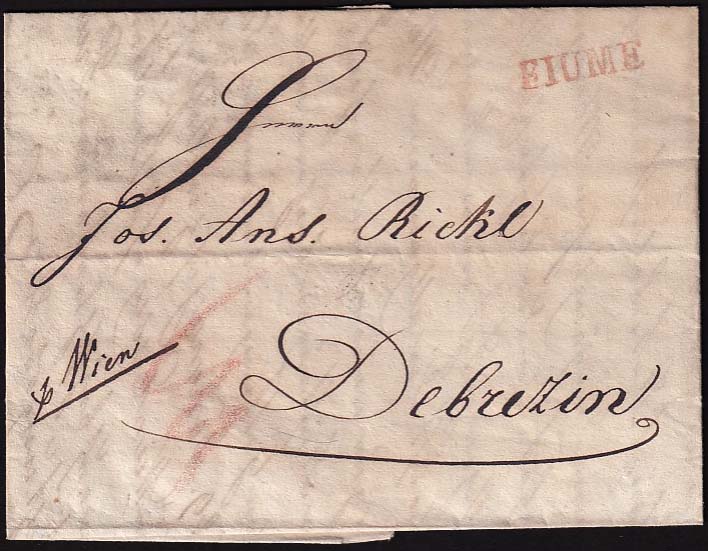 FIUME
Herrn
Jos. Ans. Rickl
p Wien
Debrezin